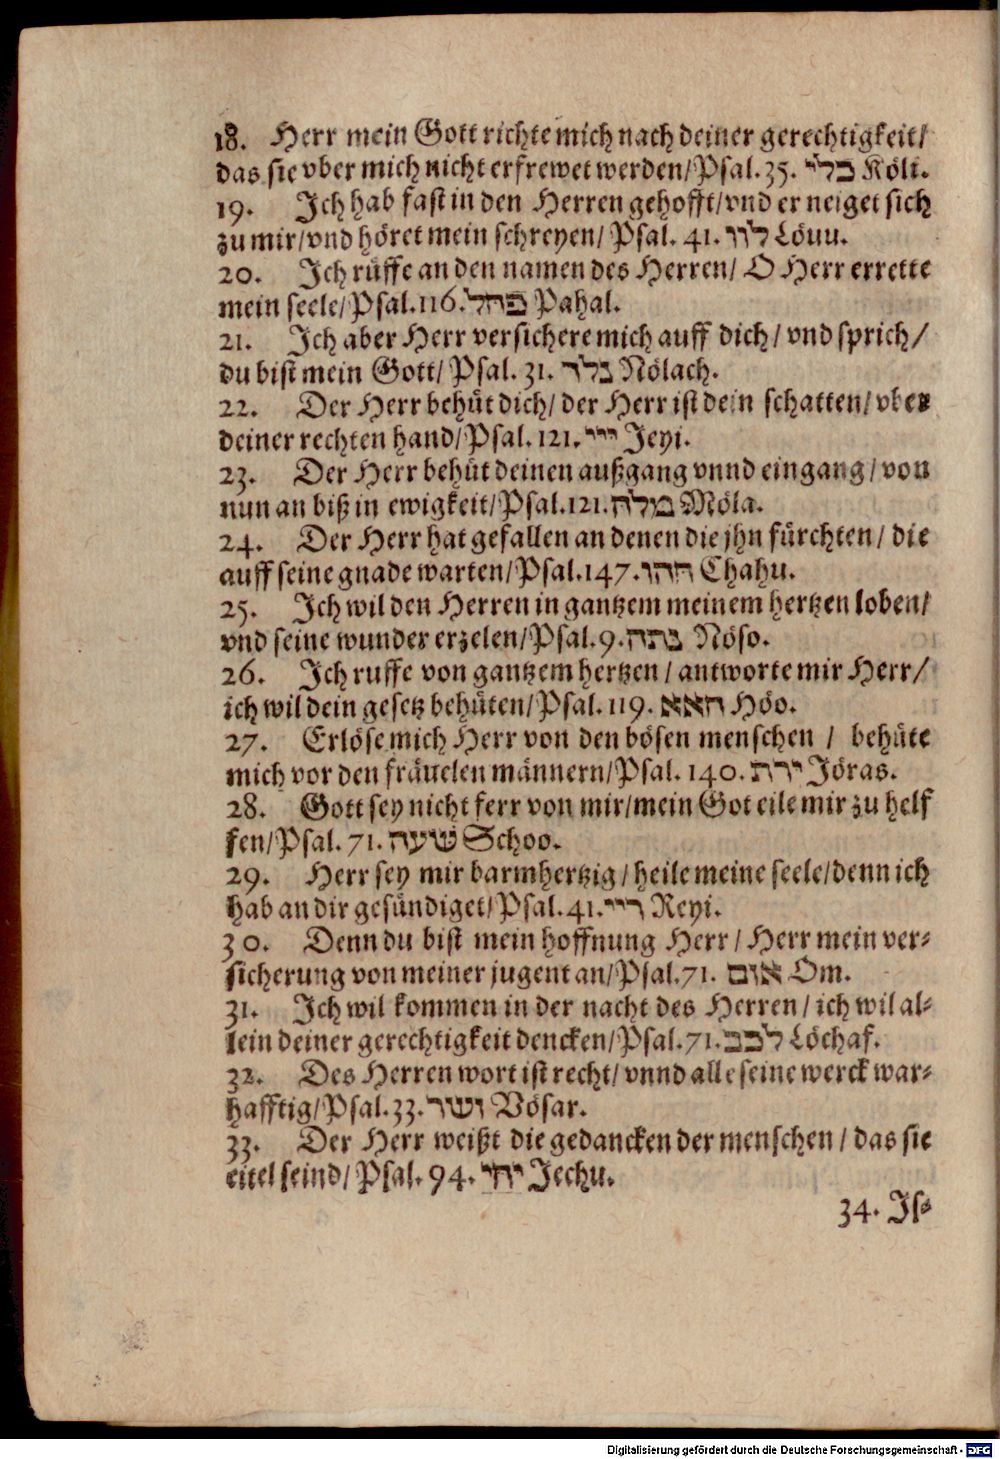 18. Herr mein Gott richte mich nach deiner gerechtigkeit/
das sie vber mich nicht erfrewet werden/Psal. 35. כלי Köli.
19. Ich hab fast in den Herren gehofft/vnd er neiget sich
zu mir/vnd höret mein schreyen/ Psal. 41. לוו Löuu.
20. Ich rüffe an den namen des Herren/ O Herr errette
mein seele/Psal.116. פהל Pahal.
21. Ich aber Herr versichere mich auff dich/ vnd sprich/
du bist mein Gott/ Psal. 31. נלך Nölach.
22. Der Herr behüt dich/ der Herr ist dein schatten/ vber
deiner rechten hand/Psal. 121. ייי Jeyi.
23. Der Herr behüt deinen außgang vnnd eingang/ von
nun an biß in ewigkeit/Psal.121. מלה Möla.
24. Der Herr hat gefallen an denen die jhn fürchten/ die
auff seine gnade warten/Psal.147. חהו Chahu.
25. Ich wil den Herren in gantzem meinem hertzen loben/
vnd seine wunder erzelen/Psal.9. נתה Nöso.
26. Ich ruffe von gantzem hertzen/ antworte mir Herr/
ich wil dein gesetz behüten/Psal. 119. האא Höo.
27. Erlöse mich Herr von den bösen menschen / behüte
mich vor den fräuelen männern/Psal. 140. ירת Jöras.
28. Gott sey nicht ferr von mir/mein Got eile mir zu helf
fen/Psal. 71. שעה Schoo.
29. Herr sey mir barmhertzig/ heile meine seele/denn ich
hab an dir gesündiget/Psal.41. ריי Reyi.
30. Denn du bist mein hoffnung Herr/ Herr mein ver-
sicherung von meiner jugent an/Psal.71. אום Om.
31. Ich wil kommen in der nacht des Herren/ ich wil al-
lein deiner gerechtigkeit dencken/Psal.71. לכב Löchaf.
32. Des Herren wort ist recht/ vnnd alle seine werck war-
hafftig/Psal.33. ושר Vösar.
33. Der Herr weißt die gedancken der menschen/ das sie
eitel seind/ Psal. 94. יחי Jechu.
34. Is-
Digitalisierung gefördert durch die Deutsche Forschungsgemeinschaft - DFG